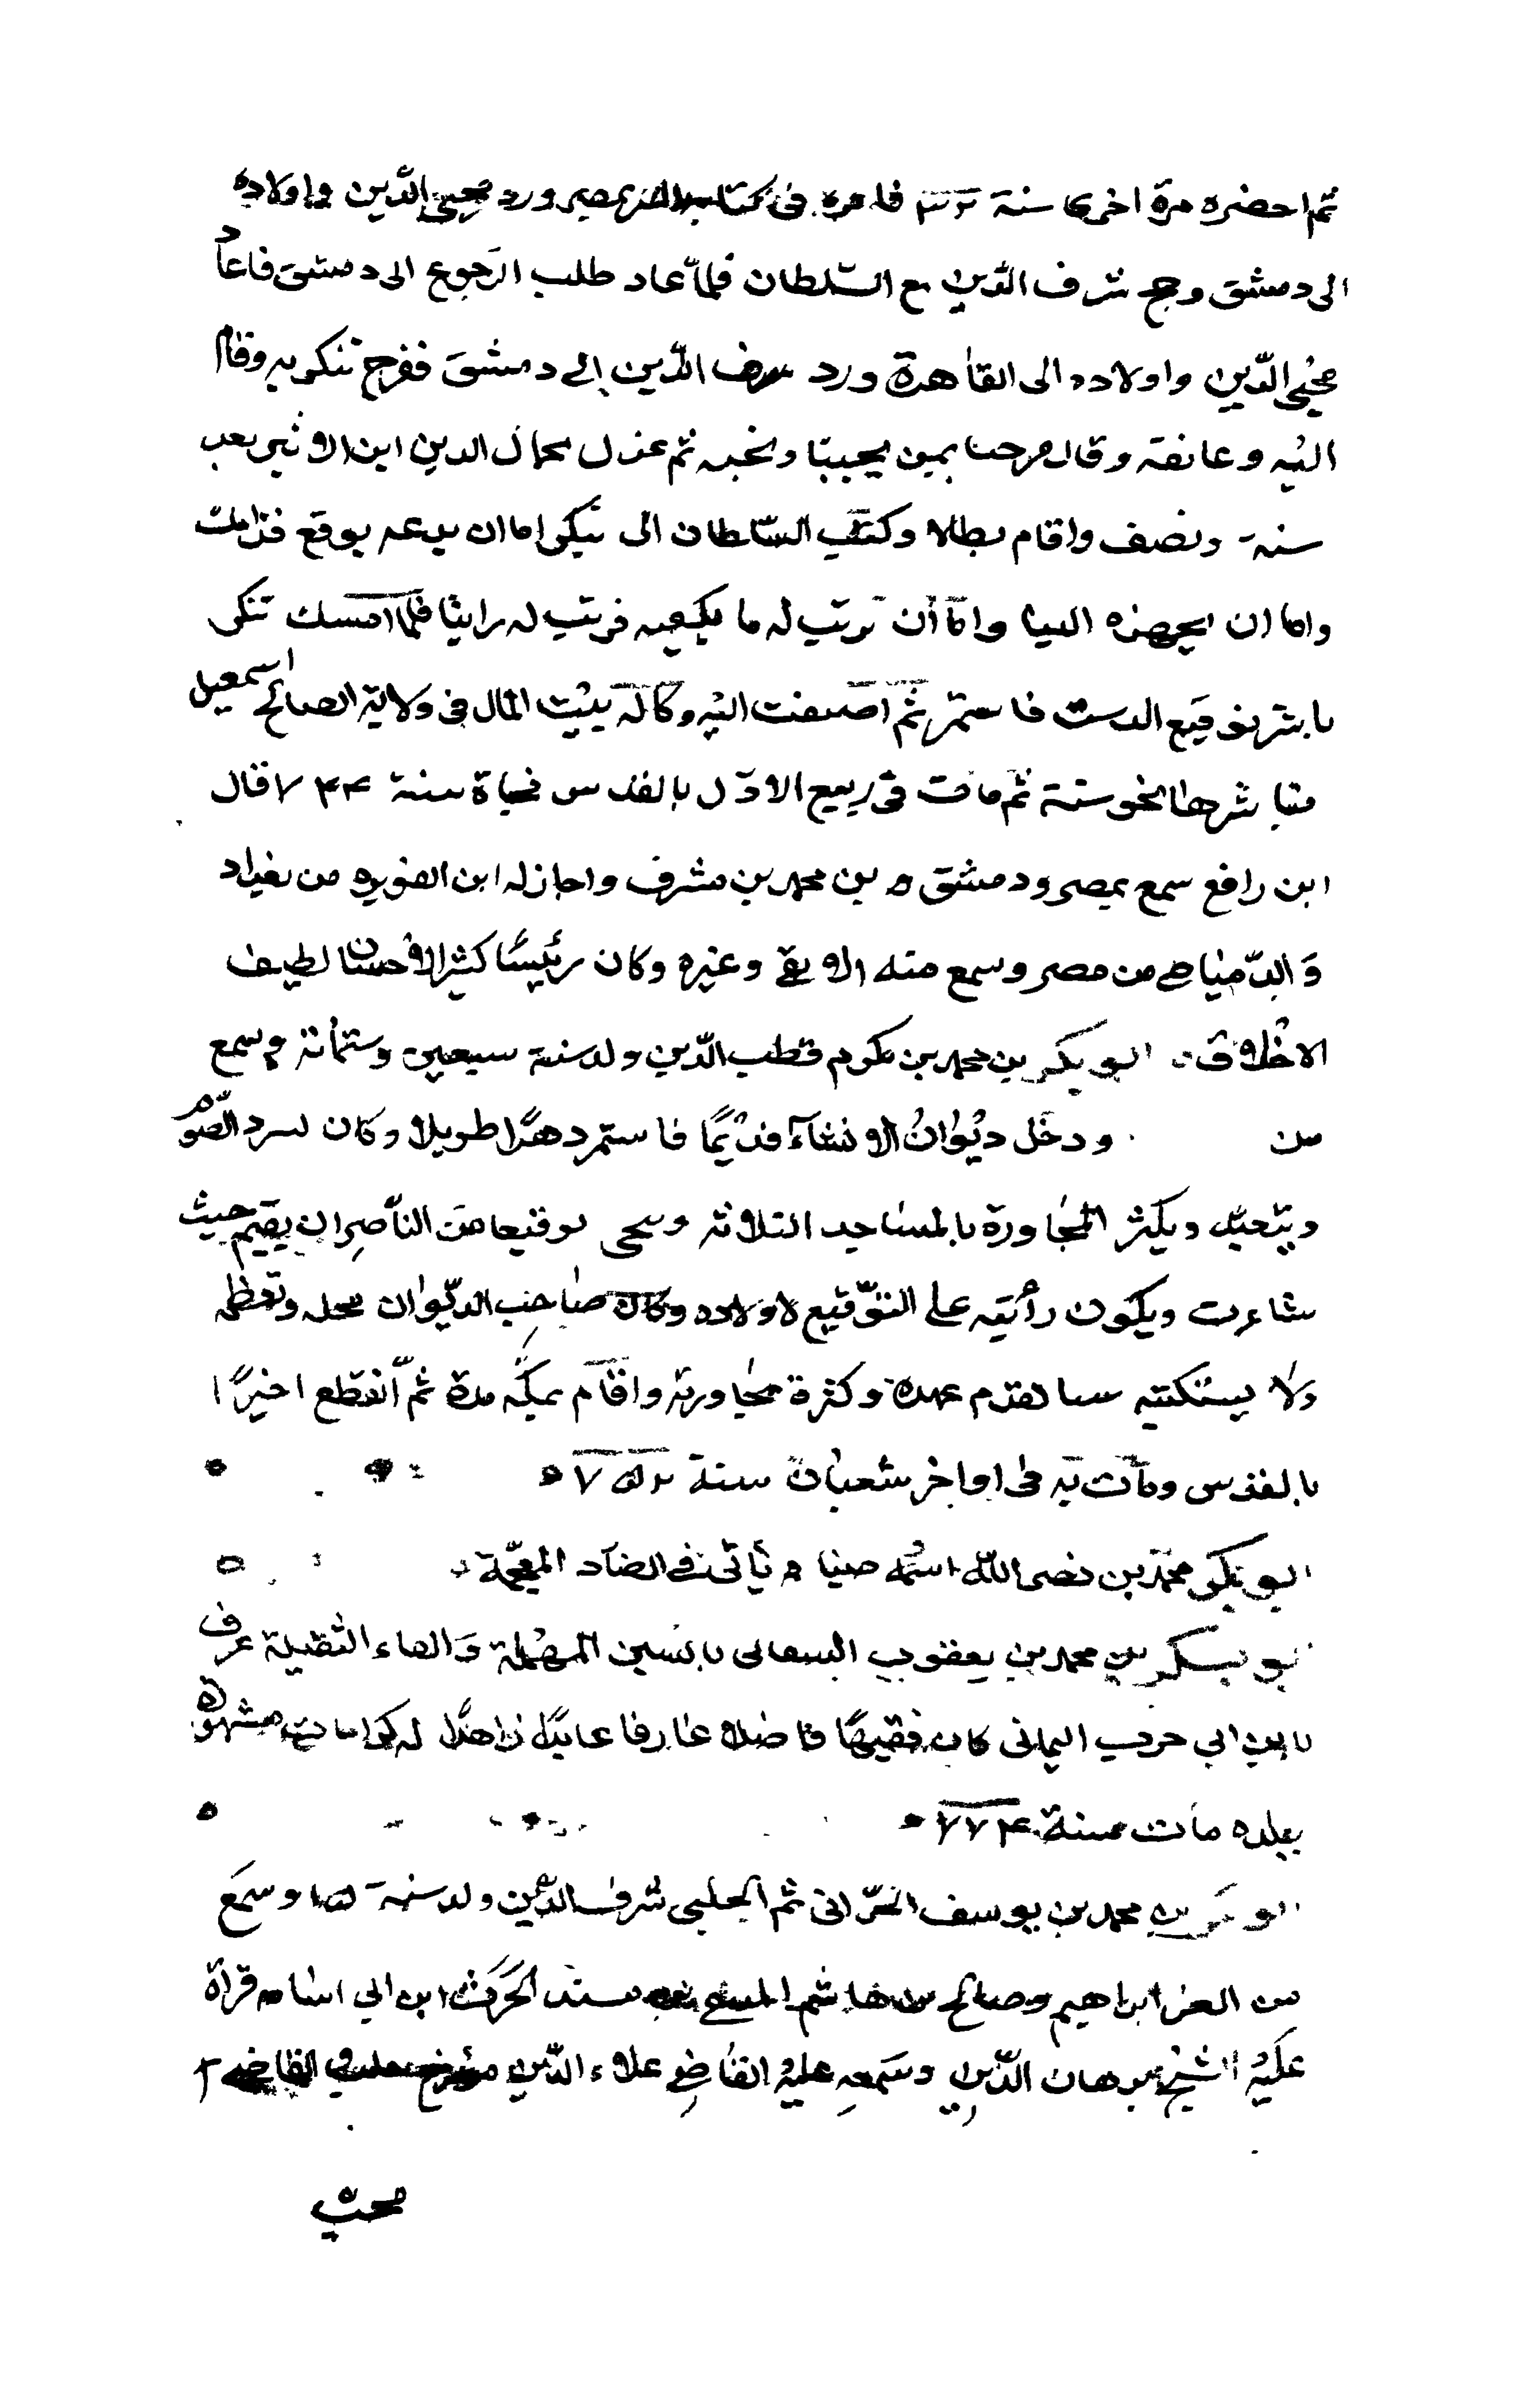 ثم احضره مرة اخرى سنة ٣٢ فاقره فى كتابة السر بمصر ورد محيى الدّين واولاده
الى دمشق وحج شرف الدّين مع السّلطان فلمّا عاد طلب الرّجوع الى دمشق فاعاد
محيى الدّين واولاده الى القاهرة ورد شرف الدّين الى دمشق ففرح تنكز به وقام
اليه وعانقه وقال مرحبا بمن يحبنا ونحبه ثم عزل بجمال الدين ابن الاثير بعد
سنة ونصف واقام بطالا وكتب السّلطان الى تنكز اما ان يدعه يوقع قدامك
واما ان يجهزه الينا واما أن ترتب له ما يكفيه فرتب له راتبا فلمّا امسك تنكز
باشر توقيع الدست فاستمر ثم اضيفت اليه وكالة بيت المال فى ولاية الصالح اسمعيل
فباشرها نحو سنة ثم مات فى ربيع الاوّل بالقدس فجاة سنة ٧٤٤ قال
ابن رافع سمع بمصر ودمشق من محمد بن مشرف واجاز له ابن الفويره من بغداد
وَالدّمياطى من مصر وسمع منه وغيره وكان رئيسًا كثير الاحسان لطيف
الاخلاق ابو بكر بن محمد بن مكرم قطب الدّين ولد سنة سبعين وستمائة وسمع
من ودخل ديوان الانشاء قديمًا فاستمر دهرًا طويلا وكان يسرد الصّوم
ويتعبّد ويكثر المجاورة بالمساجد الثلاثة توقيعا من الناصر ان يقيم حيث
شاء ويكون راتبه على التوّقيع لاولاده وكان صاحب الديّوان يجله وتعظمه
ولا يستكتبه لتقدم عهده وكثرة مجاورته واقام بمكّه مدة ثمّ انقطع اخيرًا
بالقدس ومات به فى اواخر شعبان سنة ٧٥٢
ابو بكر محمّد بن نصر اللّه اسمه ضياء ياتى فى الضاد المعجّمة
ابو بكر بن محمد بن يعقوب بالسين المهملة وَالهاء الثقيلة عرف
بابن ابي حربه اليمانى كان فقيهًا فاضلا عارفا عابدًا زاهدًا له كرامات مشهورة
ببلده مات سنة ٧٧٤
ابو بكر بن محمد بن يوسف الحرّانى ثم الحلبى شرف الدّين ولد سنة وسمع
من العز ابراهيم وصالح مسند الحرث ابن ابي اسامه قراة
عليه الشيخ برهان الدّين وسمعه عليه القاضى علاء الدّين
محب